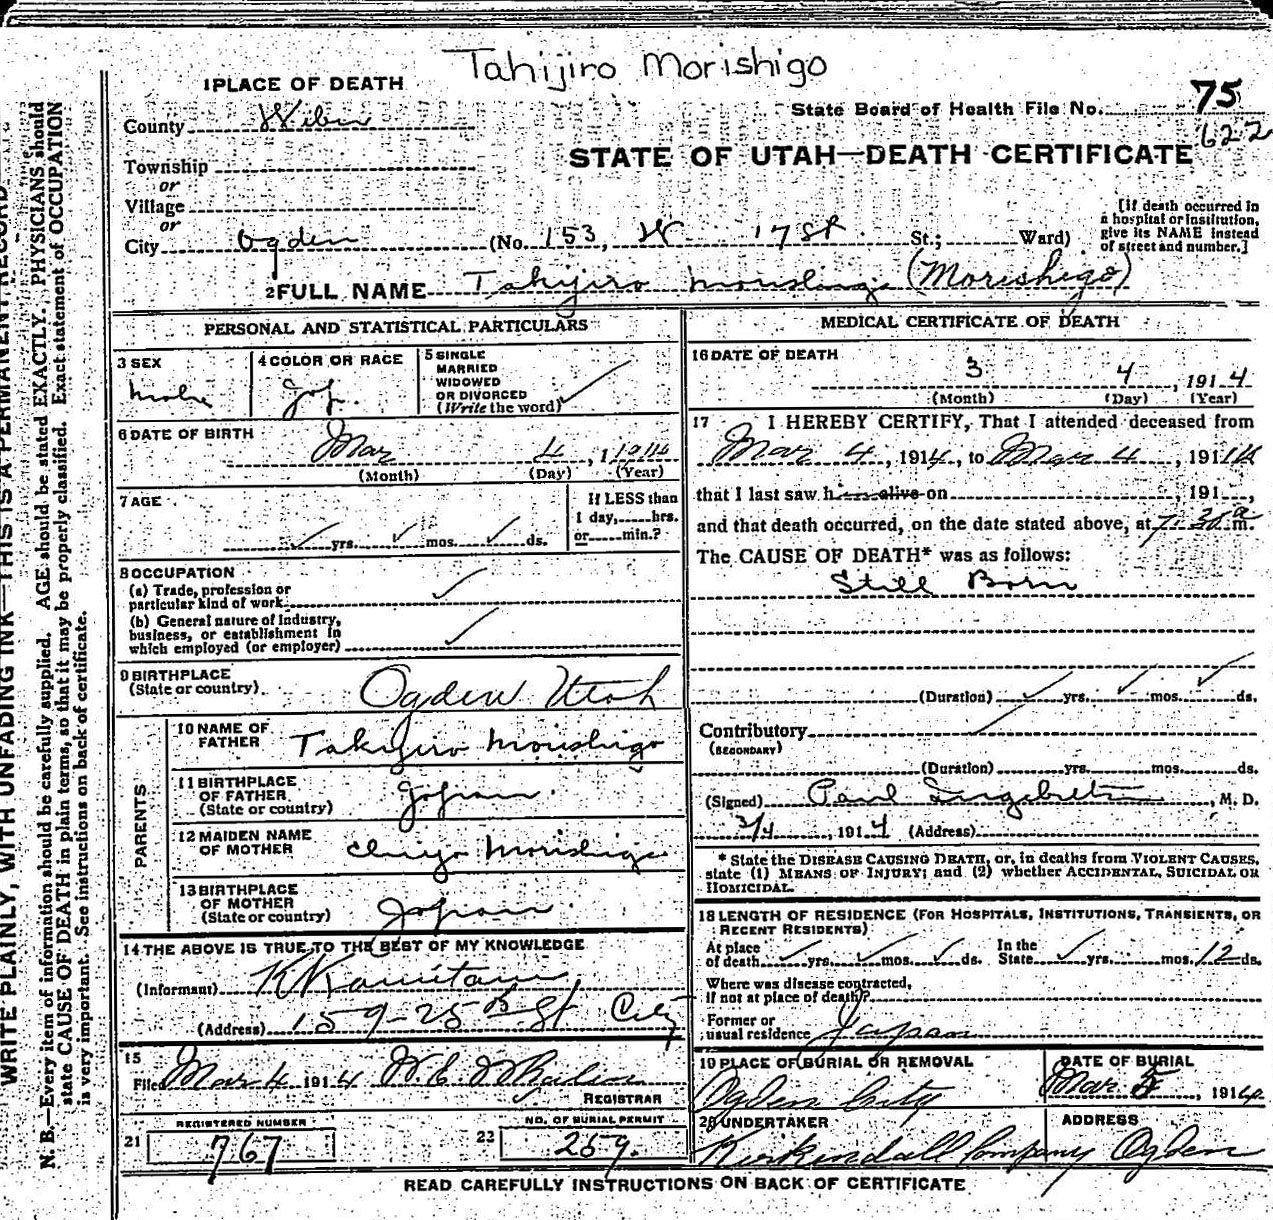 Tahijiro Morishigo
1 PLACE OF DEATH
State Board of Health File No. 75
622
County Weber
STATE OF UTAH—DEATH CERTIFICATE
Township
or
Village
or
City Ogden (No. 153, W 17 St St.; Ward)
[If death occurred in
a hospital or institution,
give its NAME instead
of street and number.]
2 FULL NAME Tahijiro (Morishigo)
PERSONAL AND STATISTICAL PARTICULARS
3 SEX
Male
4 COLOR OR RACE
Jap.
5 SINGLE
MARRIED
WIDOWED
OR DIVORCED
(Write the word)
6 DATE OF BIRTH
Mar 4, 1914
(Month) (Day) (Year)
7 AGE
yrs. mos. ds.
If LESS than
1 day, hrs.
or min.?
8 OCCUPATION
(a) Trade, profession or
particular kind of work
(b) General nature of industry,
business, or establishment in
which employed (or employer)
9 BIRTHPLACE
(State or country) Ogden Utah
PARENTS
10 NAME OF
FATHER Takijiro Morishigo
11 BIRTHPLACE
OF FATHER
(State or country) Japan.
12 MAIDEN NAME
OF MOTHER Chiyo Morishige
13 BIRTHPLACE
OF MOTHER
(State or country) Japan
14 THE ABOVE IS TRUE TO THE BEST OF MY KNOWLEDGE
(Informant) K Kamitani
(Address) 159-25th St City
15
Filed Mar 4 1914 W. E. Whalen
REGISTRAR
21 REGISTERED NUMBER
767
22 NO. OF BURIAL PERMIT
259.
MEDICAL CERTIFICATE OF DEATH
16 DATE OF DEATH
3 4, 1914
(Month) (Day) (Year)
17 I HEREBY CERTIFY, That I attended deceased from
Mar 4, 1914, to Mar 4, 1914
that I last saw h alive on , 191 ,
and that death occurred, on the date stated above, at 7:30 a m.
The CAUSE OF DEATH* was as follows:
Still Born
(Duration) yrs. mos. ds.
Contributory
(SECONDARY)
(Duration) yrs. mos. ds.
(Signed) Paul Ingebretsen, M. D.
3/4, 1914 (Address)
* State the DISEASE CAUSING DEATH, or, in deaths from VIOLENT CAUSES,
state (1) MEANS OF INJURY; and (2) whether ACCIDENTAL, SUICIDAL OR
HOMICIDAL.
18 LENGTH OF RESIDENCE (FOR HOSPITALS, INSTITUTIONS, TRANSIENTS, OR
RECENT RESIDENTS)
At place
of death yrs. mos. ds.
In the
State yrs. mos. 12 ds.
Where was disease contracted,
if not at place of death?
Former or
usual residence Japan
19 PLACE OF BURIAL OR REMOVAL
Ogden City
DATE OF BURIAL
Mar 5, 1914
20 UNDERTAKER
Kirkendall Company
ADDRESS
Ogden
READ CAREFULLY INSTRUCTIONS ON BACK OF CERTIFICATE
WRITE PLAINLY, WITH UNFADING INK—THIS IS A PERMANENT RECORD
N. B.—Every item of information should be carefully supplied. AGE should be stated EXACTLY. PHYSICIANS should
state CAUSE OF DEATH in plain terms, so that it may be properly classified. Exact statement of OCCUPATION
is very important. See instructions on back of certificate.